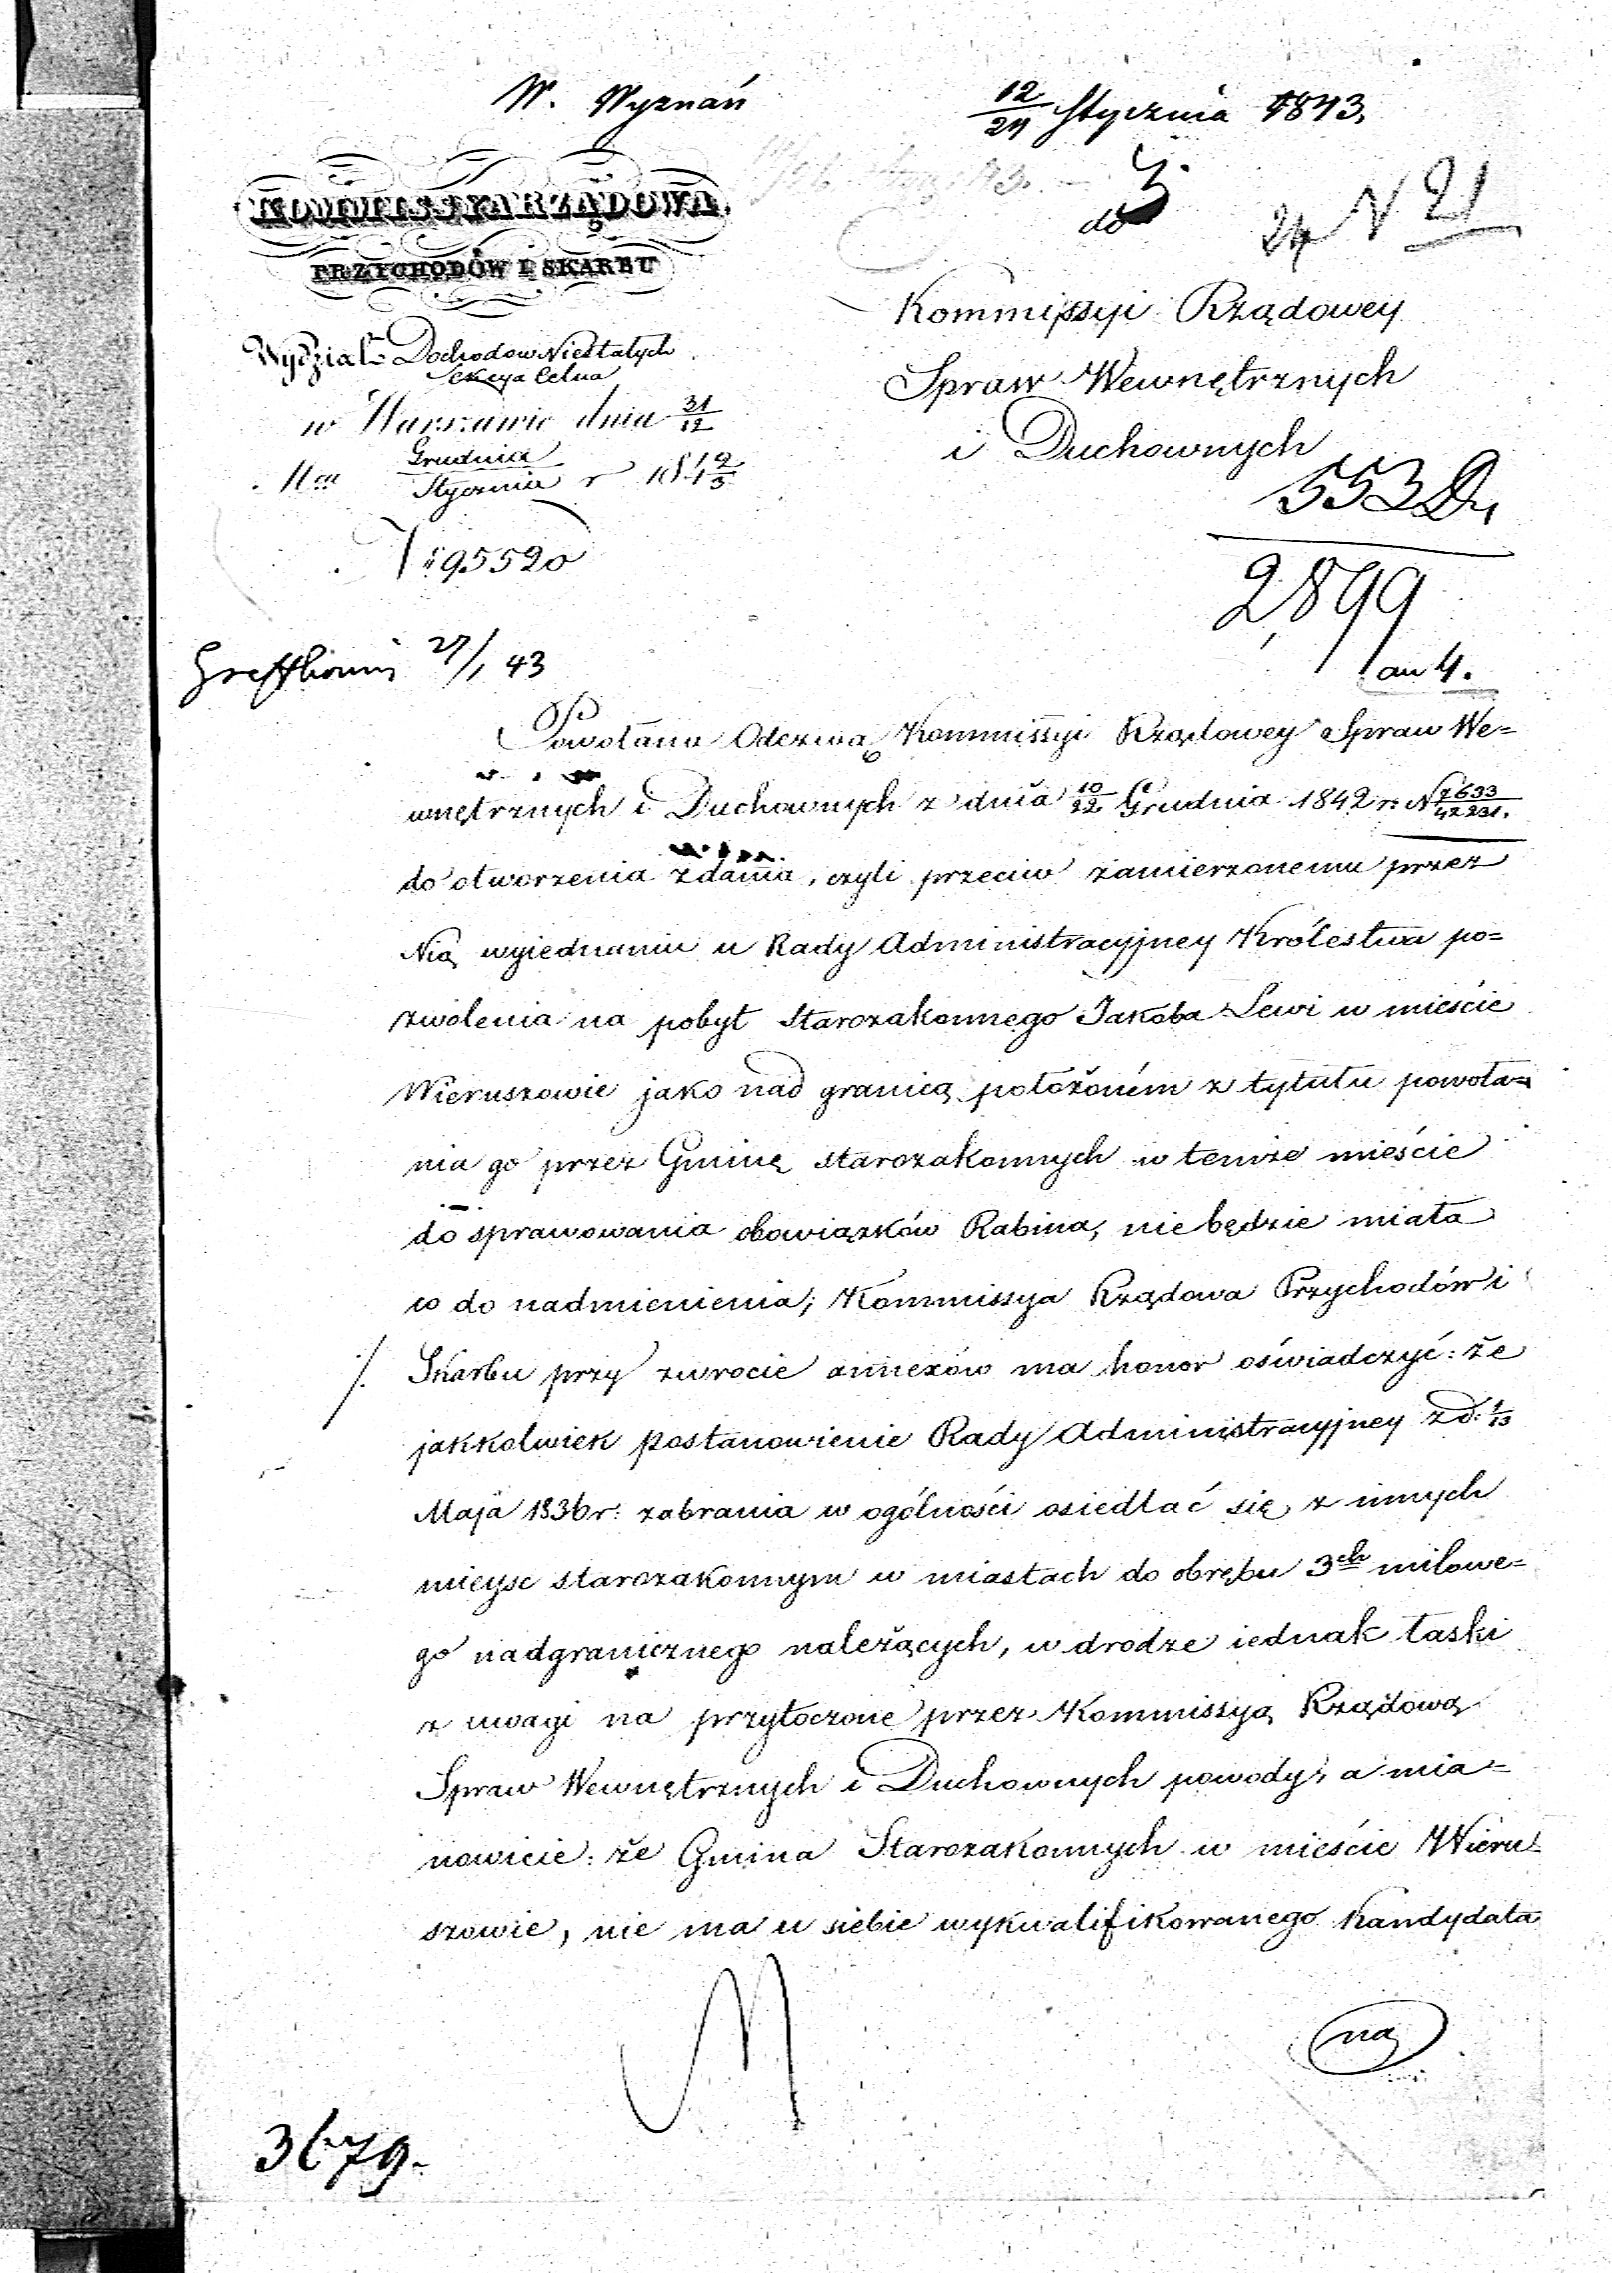 W. Wyznań
12/24 Stycznia 1843.
KOMMISSYA RZĄDOWA
PRZYCHODÓW I SKARBU
do
24 N 21
Kommissyi Rządowey
Spraw Wewnętrznych
i Duchownych
Wydział Dochodow Niestałych
Sekcya Celna
w Warszawie dnia 31/12
Grudnia/Stycznia r 1842/3
N 95520
553 Du
2899
an 4.
27/1 43
Powołana Odezwą Kommissyi Rządowey Spraw We=
wnętrznych i Duchownych z dnia 10/22 Grudnia 1842 r: N 7633/42231.
do otworzenia zdania, czyli przeciw zamierzonemu przez
Nią wyiednaniu u Rady Administracyjney Królestwa po=
zwolenia na pobyt Starozakonnego Jakóba Lewi w mieście
Wieruszowie jako nad granicą położoném z tytułu powoła=
nia go przez Gminę starozakonnych w temże mieście
do sprawowania obowiązków Rabina, nie będzie miała
co do nadmienienia; Kommissya Rządowa Przychodów i
Skarbu przy zwrocie annexów ma honor oświadczyć: że
jakkolwiek postanowienie Rady Administracyjney z d: 1/13
Maja 1836 r: zabrania w ogólności osiedlać się z innych
mieysc starozakonnym w miastach do obrębu 3ch milowe=
go nadgranicznego należących, w drodze iednak łaski
z uwagi na przytoczone przez Kommissyą Rządową
Spraw Wewnętrznych i Duchownych powody, a mia=
nowicie: że Gmina Starozakonnych w mieście Wieru=
szowie, nie ma u siebie wykwalifikowanego Kandydata
na
3679.